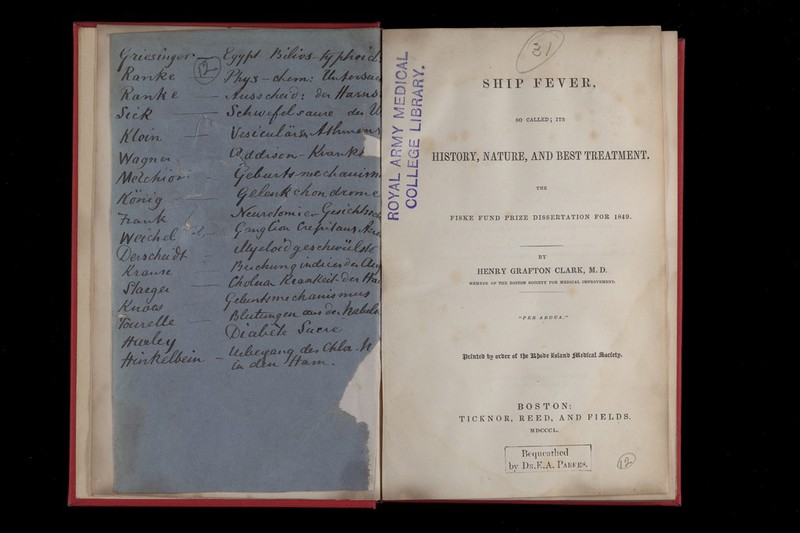 Griesinger — Egypt Biliös-typhoid
12
Ranke — Phys-chem: Untersuc
Ranke — Ausscheid: der Harns
Sick — Schwefelsaure der U
Klein — Vesiculären Athmens
Wagner — Addison-Krankh
Melchior — Geburtsmechanism
König — Gelenkchondrome
Frank — Neurotomie Gesichts
Weichel — Ganglion
Derscheidt — Myeloidgeschwülste
Krause —
Staeger — Cholera Krankheit
Knaus — Geburtsmechanismus
Tourelle — Blutungen aus der Nabel
Huxley — Diabète Sucré
Hinkelbein — Uebergang des Chlor
in den Harn.
ROYAL ARMY MEDICAL
COLLEGE LIBRARY.
SHIP FEVER,
SO CALLED; ITS
HISTORY, NATURE, AND BEST TREATMENT.
THE
FISKE FUND PRIZE DISSERTATION FOR 1849.
BY
HENRY GRAFTON CLARK, M. D.
MEMBER OF THE BOSTON SOCIETY FOR MEDICAL IMPROVEMENT.
"PER ARDUA."
Printed by order of the Rhode Island Medical Society.
BOSTON:
TICKNOR, REED, AND FIELDS.
MDCCCL.
Bequeathed
by Dr. E.A. Parkes.
12